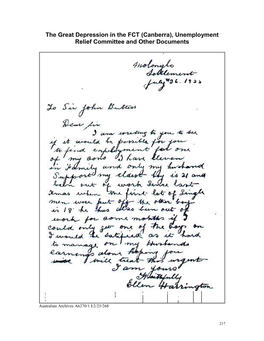 The Great Depression in the FCT (Canberra), Unemployment
Relief Committee and Other Documents
Molonglo
Settlement
July 26. 1933
To Sir John Butters
Dear Sir
I am writing to you to see
if it would be possible for you
to find employment for one
of my sons I have eleven
in family and only my husband
Support my eldest boy is 21 and
been out of work since last
Xmas when the first lot of single
men were put off the other boy
is 18 he has also been out of
work for some months if I
could only get one of the boys on
I would be satisfied as it hard
to manage on my Husbands
earnings alone hoping you
will treat this urgent
I am yours
Faithfully
Ellen Harrington
Australian Archives A6270/1 E2/25/268
217